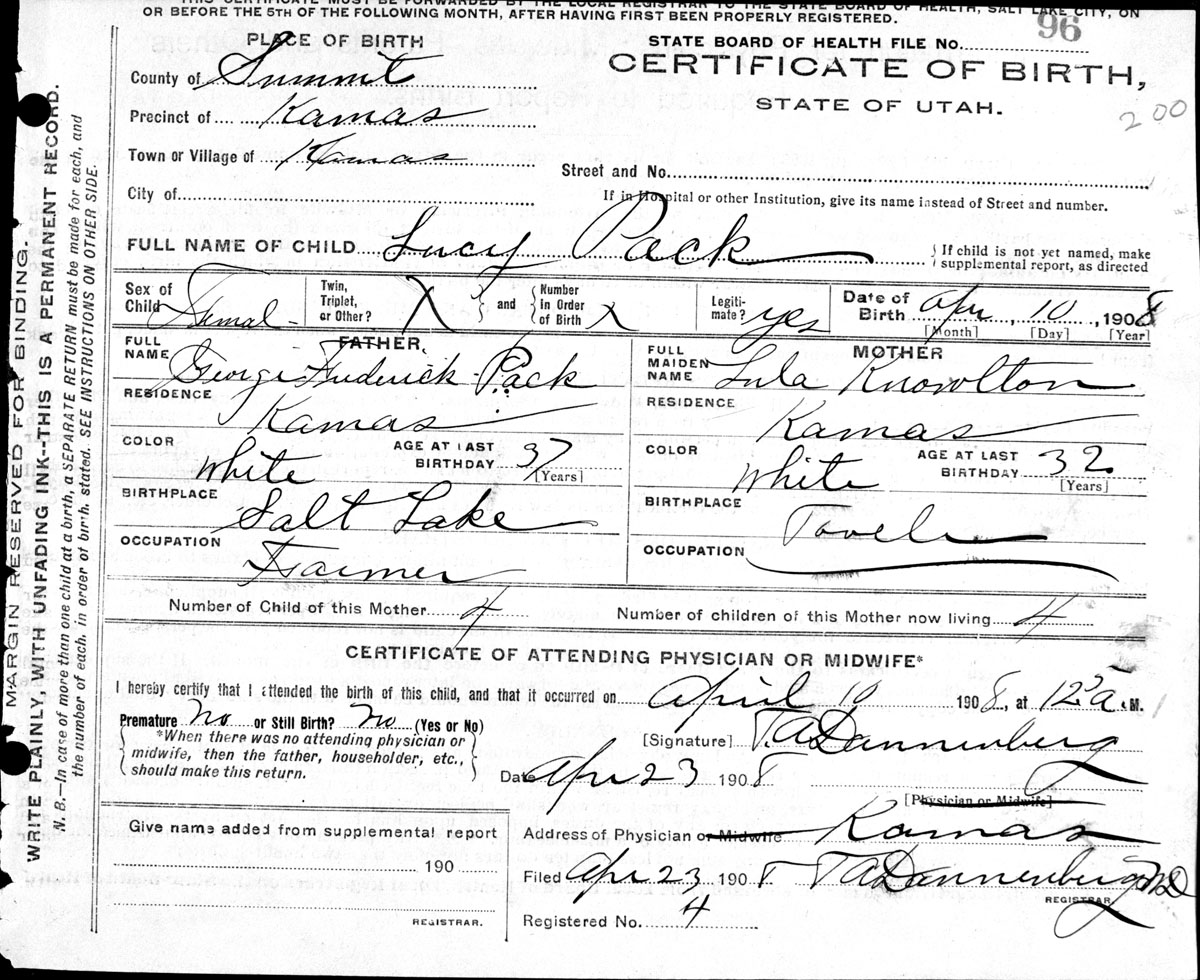 THIS CERTIFICATE MUST BE FORWARDED BY THE LOCAL REGISTRAR TO THE STATE BOARD OF HEALTH, SALT LAKE CITY, ON
OR BEFORE THE 5TH OF THE FOLLOWING MONTH, AFTER HAVING FIRST BEEN PROPERLY REGISTERED.
PLACE OF BIRTH
STATE BOARD OF HEALTH FILE No. 96
County of Summit
CERTIFICATE OF BIRTH,
STATE OF UTAH.
200
Precinct of Kamas
Town or Village of Kamas
Street and No.
City of
If in Hospital or other Institution, give its name instead of Street and number.
FULL NAME OF CHILD Lucy Pack
} If child is not yet named, make
supplemental report, as directed
Sex of Child Femal
Twin, Triplet, or Other? X } and { Number in Order of Birth X
Legiti-mate? yes
Date of Birth Apr, 10, 1908
[Month] [Day] [Year]
FATHER
FULL NAME George Frederick Pack
RESIDENCE Kamas
COLOR White AGE AT LAST BIRTHDAY 37
[Years]
BIRTHPLACE Salt Lake
OCCUPATION Farmer
MOTHER
FULL MAIDEN NAME Lula Knowlton
RESIDENCE Kamas
COLOR White AGE AT LAST BIRTHDAY 32
[Years]
BIRTHPLACE
OCCUPATION
Number of Child of this Mother 4 Number of children of this Mother now living 4
CERTIFICATE OF ATTENDING PHYSICIAN OR MIDWIFE*
I hereby certify that I attended the birth of this child, and that it occurred on April 10 1908, at 12 a.M.
Premature? No or Still Birth? No (Yes or No)
{ *When there was no attending physician or
midwife, then the father, householder, etc.,
should make this return. }
[Signature] T.A. Dannenberg
Date Apr 23 1908
[Physician or Midwife]
Give name added from supplemental report
190
REGISTRAR.
Address of Physician or Midwife Kamas
Filed Apr 23, 1908 T A Dannenberg MD
REGISTRAR.
Registered No. 4
MARGIN RESERVED FOR BINDING.
WRITE PLAINLY, WITH UNFADING INK--THIS IS A PERMANENT RECORD.
N. B.—In case of more than one child at a birth, a SEPARATE RETURN must be made for each, and
the number of each, in order of birth, stated. SEE INSTRUCTIONS ON OTHER SIDE.